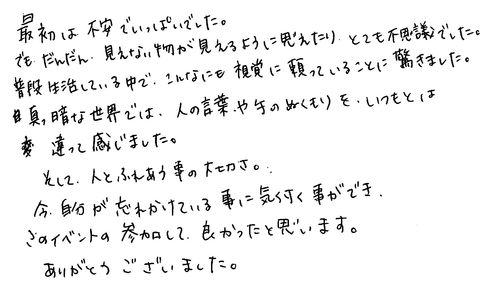 最初は不安でいっぱいでした。
でも、だんだん、見えない物が見えるように思えたり、とても不思議でした。
普段生活している中で、こんなにも視覚に頼っていることに驚きました。
真っ暗な世界では、人の言葉や手のぬくもりを、いつもとは
違って感じました。
そして、人とふれあう事の大切さ。
今、自分が忘れかけている事に気付く事ができ、
このイベントの参加して、良かったと思います。
ありがとうございました。